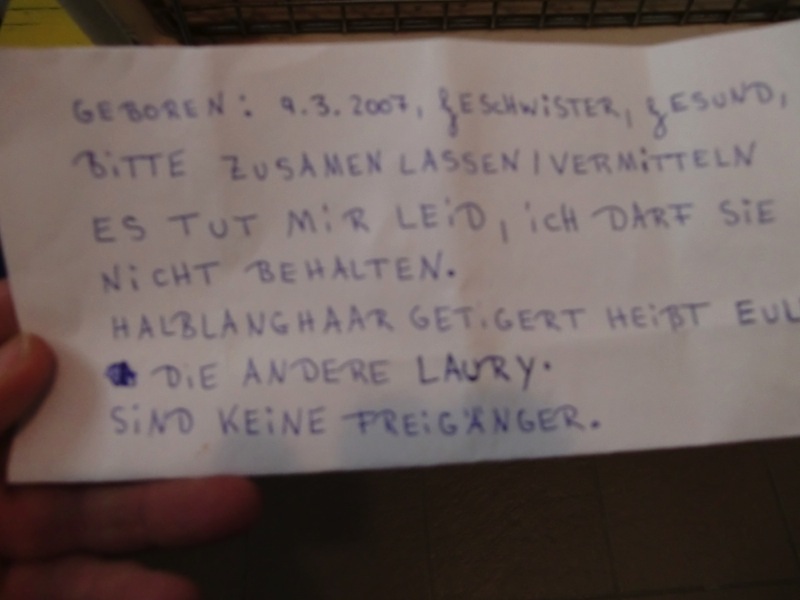 GEBOREN: 9.3.2007, GESCHWISTER, GESUND,
BITTE ZUSAMEN LASSEN / VERMITTELN
ES TUT MIR LEID, ICH DARF SIE
NICHT BEHALTEN.
HALBLANGHAAR GETIGERT HEIßT EUL
DIE ANDERE LAURY.
SIND KEINE FREIGÄNGER.